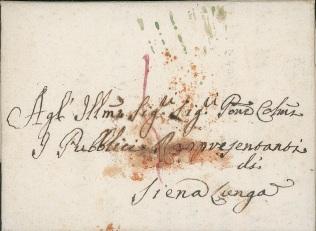 Agl' Illmi Sig.ri Sig.ri Pron Colmi
I Pubblici Rappresentanti
di
Siena Lunga